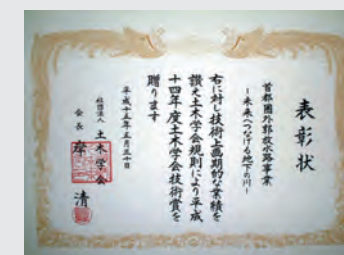 表彰状
首都圏外郭放水路事業
－未来へつなげる地下の川－
右に対し技術上画期的な業績を
讃え土木学会規則により平成
十四年度土木学会技術賞を
贈ります
平成十五年五月三十日
社団法人 土木学会
会長 岸 清